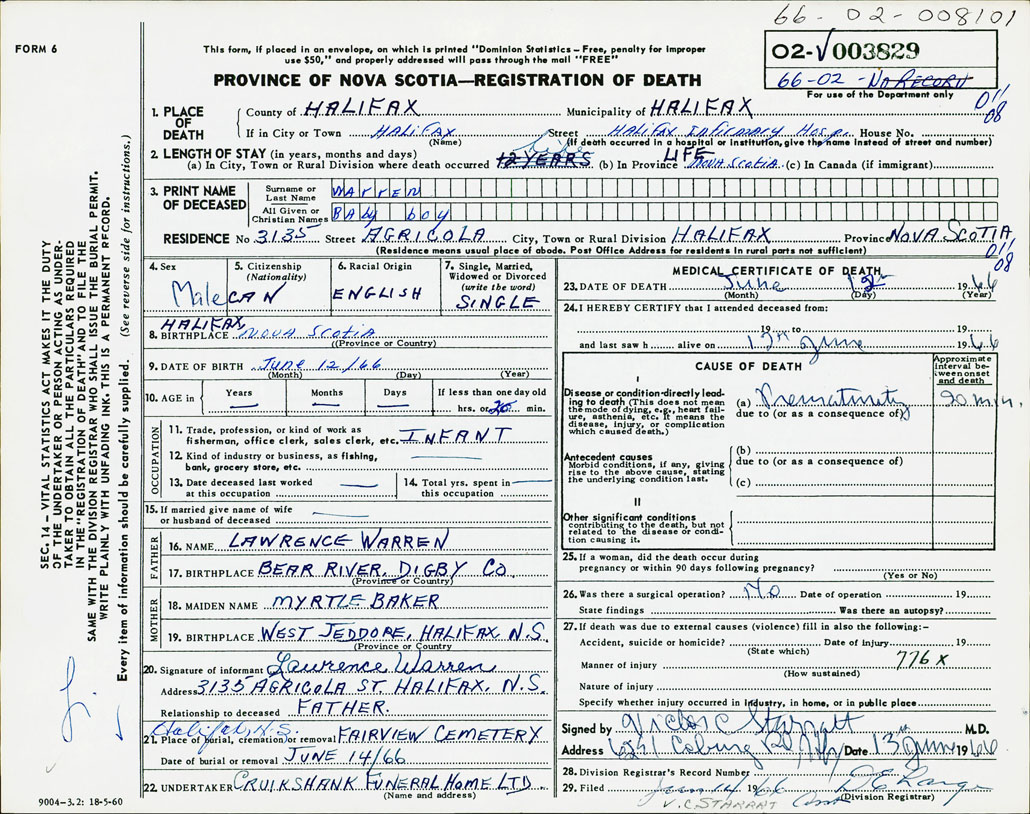 66-02-008101
FORM 6
This form, if placed in an envelope, on which is printed "Dominion Statistics – Free, penalty for improper
use $50," and properly addressed will pass through the mail "FREE"
02-√003829
66-02-No Record
PROVINCE OF NOVA SCOTIA—REGISTRATION OF DEATH
For use of the Department only
011
08
1. PLACE OF DEATH
County of HALIFAX Municipality of HALIFAX
If in City or Town HALIFAX Street HALIFAX INFIRMARY HOSP. House No.
(Name) (If death occurred in a hospital or institution, give the name instead of street and number)
2. LENGTH OF STAY (in years, months and days)
(a) In City, Town or Rural Division where death occurred 12 YEARS (b) In Province LIFE NOVA SCOTIA (c) In Canada (if immigrant)
3. PRINT NAME OF DECEASED
Surname or Last Name WARREN
All Given or Christian Names BABY BOY
RESIDENCE No 3135 Street AGRICOLA City, Town or Rural Division HALIFAX Province NOVA SCOTIA
(Residence means usual place of abode. Post Office Address for residents in rural parts not sufficient)
011
08
4. Sex Male
5. Citizenship (Nationality) CAN
6. Racial Origin ENGLISH
7. Single, Married, Widowed or Divorced (write the word) SINGLE
8. BIRTHPLACE HALIFAX, NOVA SCOTIA
(Province or Country)
9. DATE OF BIRTH June 12/66
(Month) (Day) (Year)
10. AGE in Years — Months — Days — If less than one day old
hrs. or 20 min.
OCCUPATION
11. Trade, profession, or kind of work as
fisherman, office clerk, sales clerk, etc. INFANT
12. Kind of industry or business, as fishing,
bank, grocery store, etc. —
13. Date deceased last worked
at this occupation —
14. Total yrs. spent in
this occupation —
15. If married give name of wife
or husband of deceased —
FATHER
16. NAME LAWRENCE WARREN
17. BIRTHPLACE BEAR RIVER, DIGBY CO.
(Province or Country)
MOTHER
18. MAIDEN NAME MYRTLE BAKER
19. BIRTHPLACE WEST JEDDORE, HALIFAX N.S.
(Province or Country)
20. Signature of informant Lawrence Warren
Address 3135 AGRICOLA ST. HALIFAX, N.S.
Relationship to deceased FATHER.
Halifax, N.S.
21. Place of burial, cremation/or removal FAIRVIEW CEMETERY
Date of burial or removal JUNE 14/66
22. UNDERTAKER CRUIKSHANK FUNERAL HOME LTD.
(Name and address)
9004-3.2: 18-5-60
MEDICAL CERTIFICATE OF DEATH
23. DATE OF DEATH June 12 1966
(Month) (Day) (Year)
24. I HEREBY CERTIFY that I attended deceased from:
19 to 19
and last saw h alive on 12th June 1966
CAUSE OF DEATH
Approximate interval between onset and death
I
Disease or condition-directly leading to death (This does not mean the mode of dying, e.g., heart failure, asthenia, etc. It means the disease, injury, or complication which caused death.)
(a) Prematurity 20 min.
due to (or as a consequence of)
Antecedent causes
Morbid conditions, if any, giving rise to the above cause, stating the underlying condition last.
(b)
due to (or as a consequence of)
(c)
II
Other significant conditions
contributing to the death, but not related to the disease or condition causing it.
25. If a woman, did the death occur during
pregnancy or within 90 days following pregnancy?
(Yes or No)
26. Was there a surgical operation? No Date of operation 19
State findings Was there an autopsy?
27. If death was due to external causes (violence) fill in also the following:–
Accident, suicide or homicide? Date of injury 19
(State which)
776 X
Manner of injury
(How sustained)
Nature of injury
Specify whether injury occurred in industry, in home, or in public place
Signed by Victor C Starratt M.D.
Address 6241 Coburg Rd Hfx Date 13th June 1966
28. Division Registrar's Record Number
29. Filed June 14 1966
(Division Registrar)
V.C. STARRAT
SEC. 14 – VITAL STATISTICS ACT MAKES IT THE DUTY
OF THE UNDERTAKER OR PERSON ACTING AS UNDER-
TAKER TO OBTAIN ALL THE PARTICULARS REQUIRED
IN THE "REGISTRATION OF DEATH" AND TO FILE THE
SAME WITH THE DIVISION REGISTRAR WHO SHALL ISSUE THE BURIAL PERMIT.
WRITE PLAINLY WITH UNFADING INK. THIS IS A PERMANENT RECORD.
Every item of information should be carefully supplied. (See reverse side for instructions.)